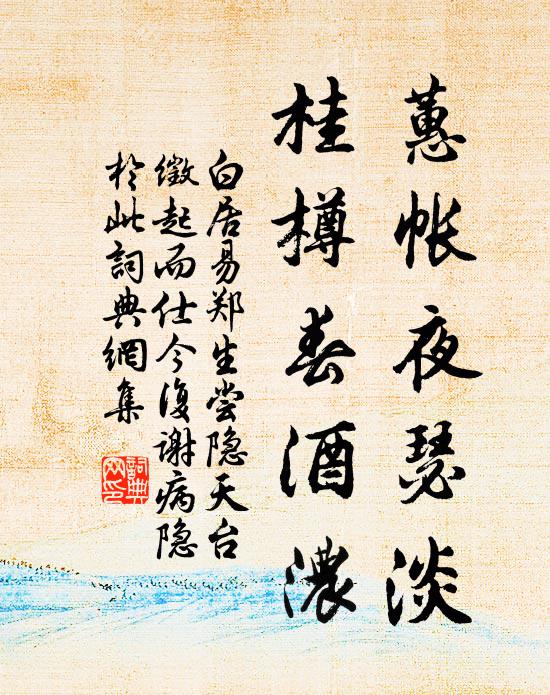 蕙帐夜瑟淡
桂樽春酒濃
白居易郑生尝隐天台
徵起而仕今復谢病隐
於此詞典網集
詞典网印